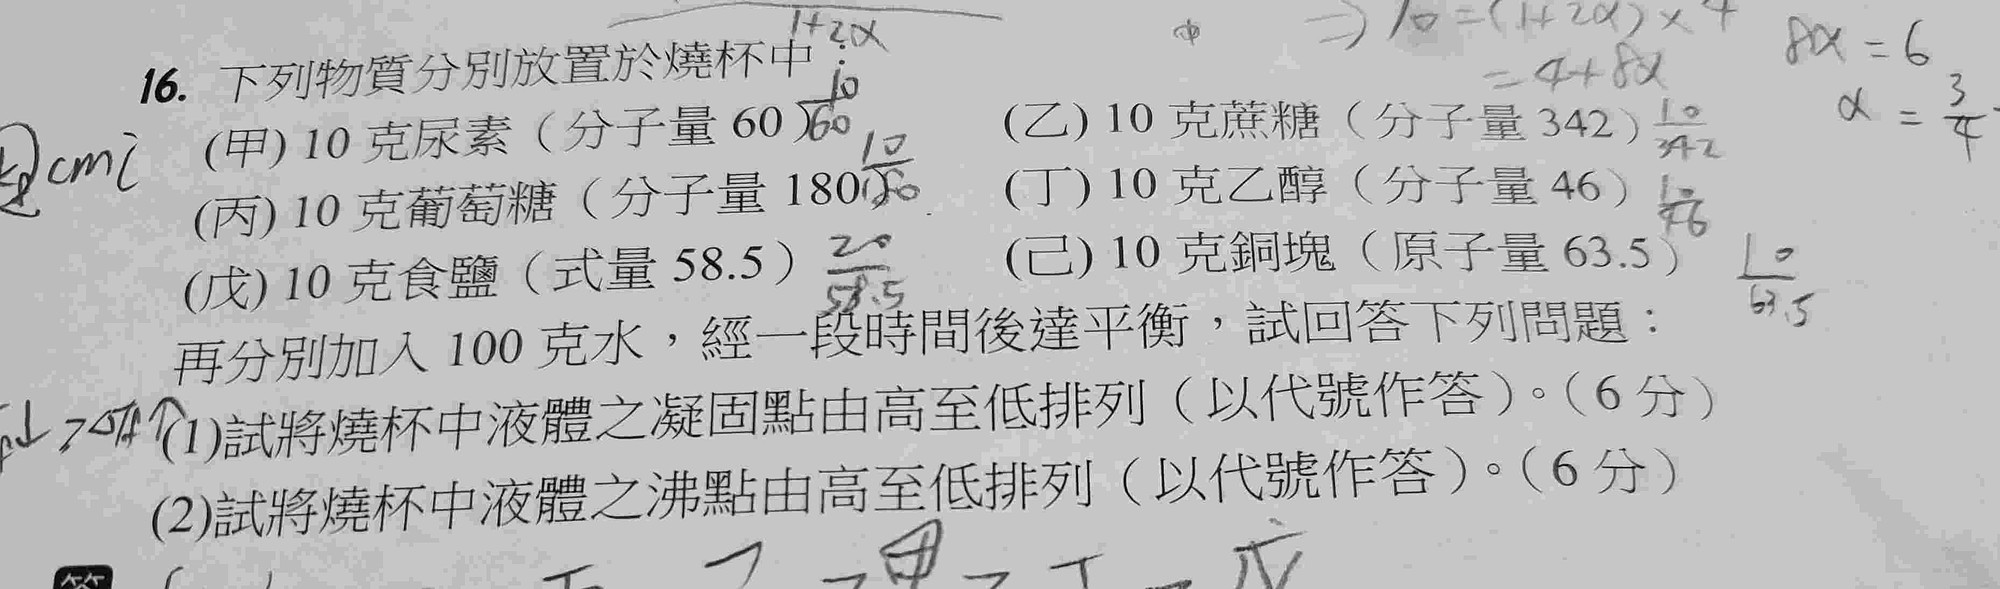 1+2α
⇒ 10 = (1+2α) × 4
= 4+8α
8α = 6
α = 3/4
16. 下列物質分別放置於燒杯中：
(甲) 10 克尿素（分子量 60） 10/60
(乙) 10 克蔗糖（分子量 342） 10/342
cmi
(丙) 10 克葡萄糖（分子量 180） 10/180
(丁) 10 克乙醇（分子量 46） 10/46
(戊) 10 克食鹽（式量 58.5） 20/58.5
(己) 10 克銅塊（原子量 63.5） 10/63.5
再分別加入 100 克水，經一段時間後達平衡，試回答下列問題：
(1)試將燒杯中液體之凝固點由高至低排列（以代號作答）。（6 分）
(2)試將燒杯中液體之沸點由高至低排列（以代號作答）。（6 分）
答